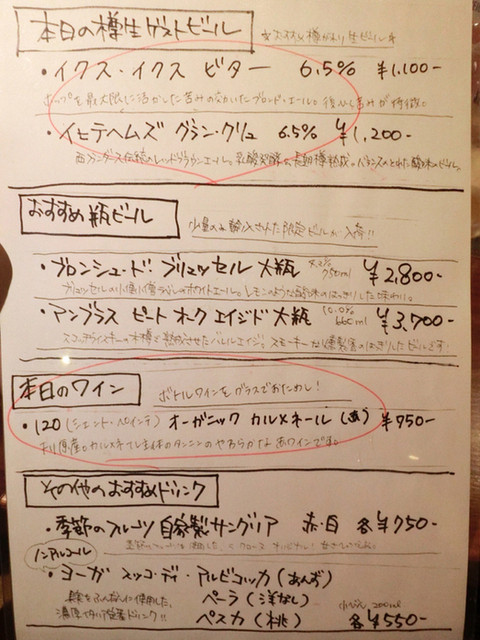 本日の樽生ゲストビール
・イクス・イクス ビター 6.5% ¥1,100-
ホップを最大限に活かした苦みの効いたブロンド・エール。後ひく苦みが特徴
・イヒテヘムズ グラン・クリュ 6.5% ¥1,200-
西フランダース伝統のレッドブラウンエール。乳酸発酵 長期樽熟成。バランスのとれた酸味のビール。
おすすめ瓶ビール
少量のみ輸入された限定ビールが入荷!!
・ブロンシュ・ド・ブリュッセル 大瓶 750ml ¥2,800-
ブリュッセルの小便小僧ラベルのホワイトエール。レモンのような酸味のはっきりした味わい。
・アンブラス ピート オーク エイジド 大瓶 10.0% 660ml ¥3,700-
スコッチウイスキーの木樽で熟成させたバレルエイジ。スモーキーな燻製香のはっきりしたビールです
本日のワイン
ボトルワインをグラスでおためし!
・120 (シェント・ベインテ) オーガニック カルメネール (赤) ¥950-
チリ原産のカルメネール主体のタンニンのやわらかな赤ワインです。
その他のおすすめドリンク
・季節のフルーツ 自家製サングリア 赤・白 各¥750-
ノンアルコール
・ヨーガ スッコ・ディ・アルビコッカ (あんず)
果実をふんだんに使用した、 ペーラ (洋なし)
濃厚 ドリンク!! ペスカ (桃) 小びん 200ml 各¥550-